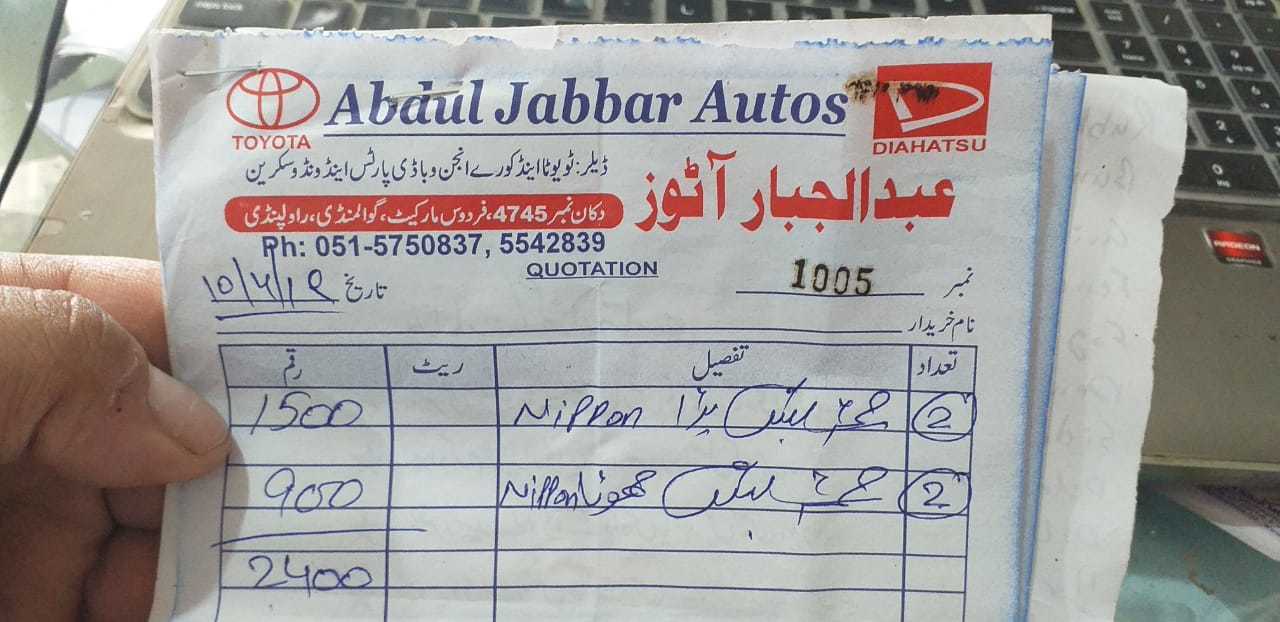 Abdul Jabbar Autos
TOYOTA
DIAHATSU
ڈیلر: ٹویوٹا اینڈ کورے انجن و باڈی پارٹس اینڈ ونڈو سکرین
عبدالجبار آٹوز
دکان نمبر 4745، فردوس مارکیٹ، گوالمنڈی، راولپنڈی
Ph: 051-5750837, 5542839
QUOTATION
نمبر 1005
تاریخ 10/4/19
نام خریدار
تعداد تفصیل ریٹ رقم
2 بڑا Nippon 1500
2 چھوٹا Nippon 900
2400
RADEON